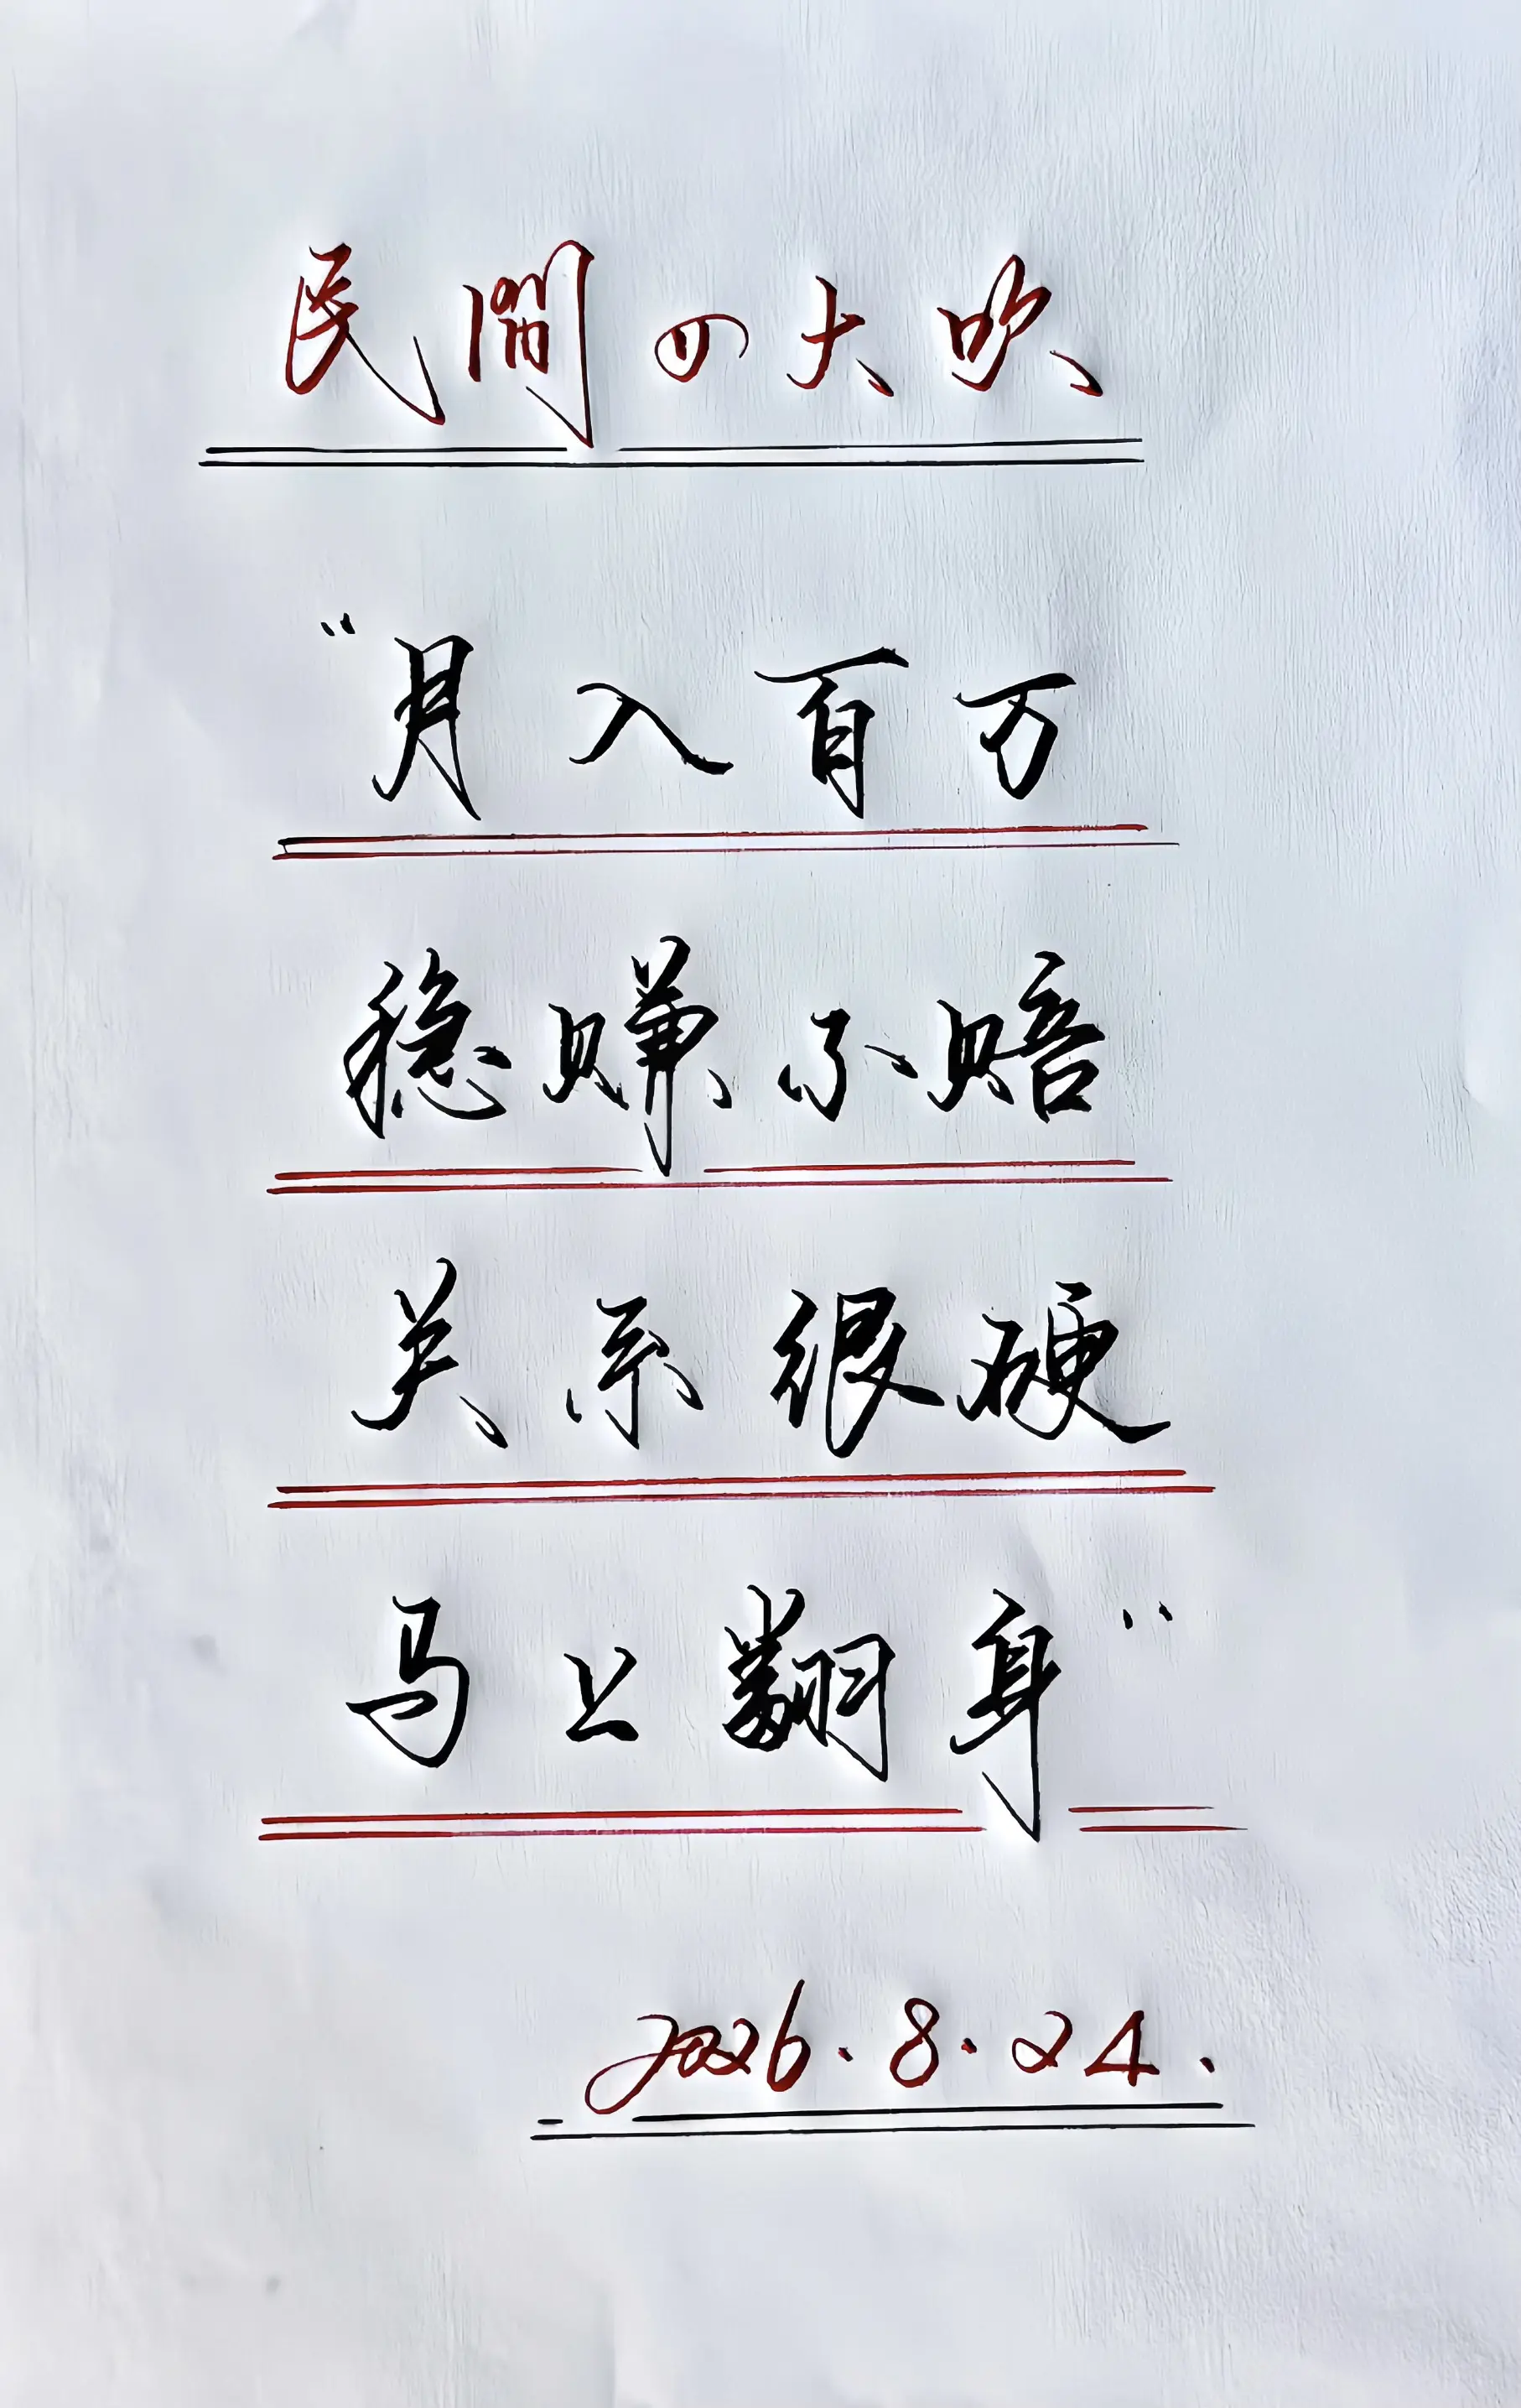 民間の大吹
“月入百万
稳赚不赔
关系很硬
马上翻身”
2026.8.24.